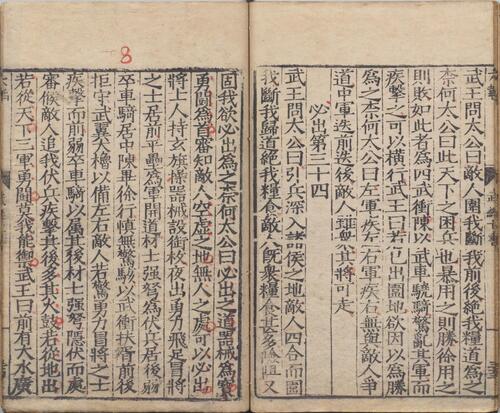 武王問太公曰敵人圍我斷我前後絕我糧道為之
柰何太公曰此天下之困兵也暴用之則勝徐用之
則敗如此者為四武衝陳以武車驍騎驚亂其軍而
疾擊之可以橫行武王曰若已出圍地欲因以為勝
為之柰何太公曰左軍疾左右軍疾右無與敵人爭
道中軍迭前迭後敵人雖衆其將可走
必出第三十四
武王問太公曰引兵深入諸侯之地敵人四合而圍
我斷我歸道絕我糧食敵人既衆糧食甚多險阻又
8
固我欲必出為之柰何太公曰必出之道器械為寳
勇鬪為首審知敵人空虚之地無人之處可以必出
將士人持玄旗操器械設銜枚夜出勇力飛足冒將
之士居前平壘為軍開道材士强弩為伏兵居後弱
卒車騎居中陳畢徐行慎無驚駭以武衝扶胥前後
拒守武翼大櫓以備左右敵人若驚勇力冒將之士
疾擊而前弱卒車騎以屬其後材士强弩隱伏而處
審候敵人追我伏兵疾擊其後多其火鼓若從地出
若從天下三軍勇鬪莫我能禦武王曰前有大水廣